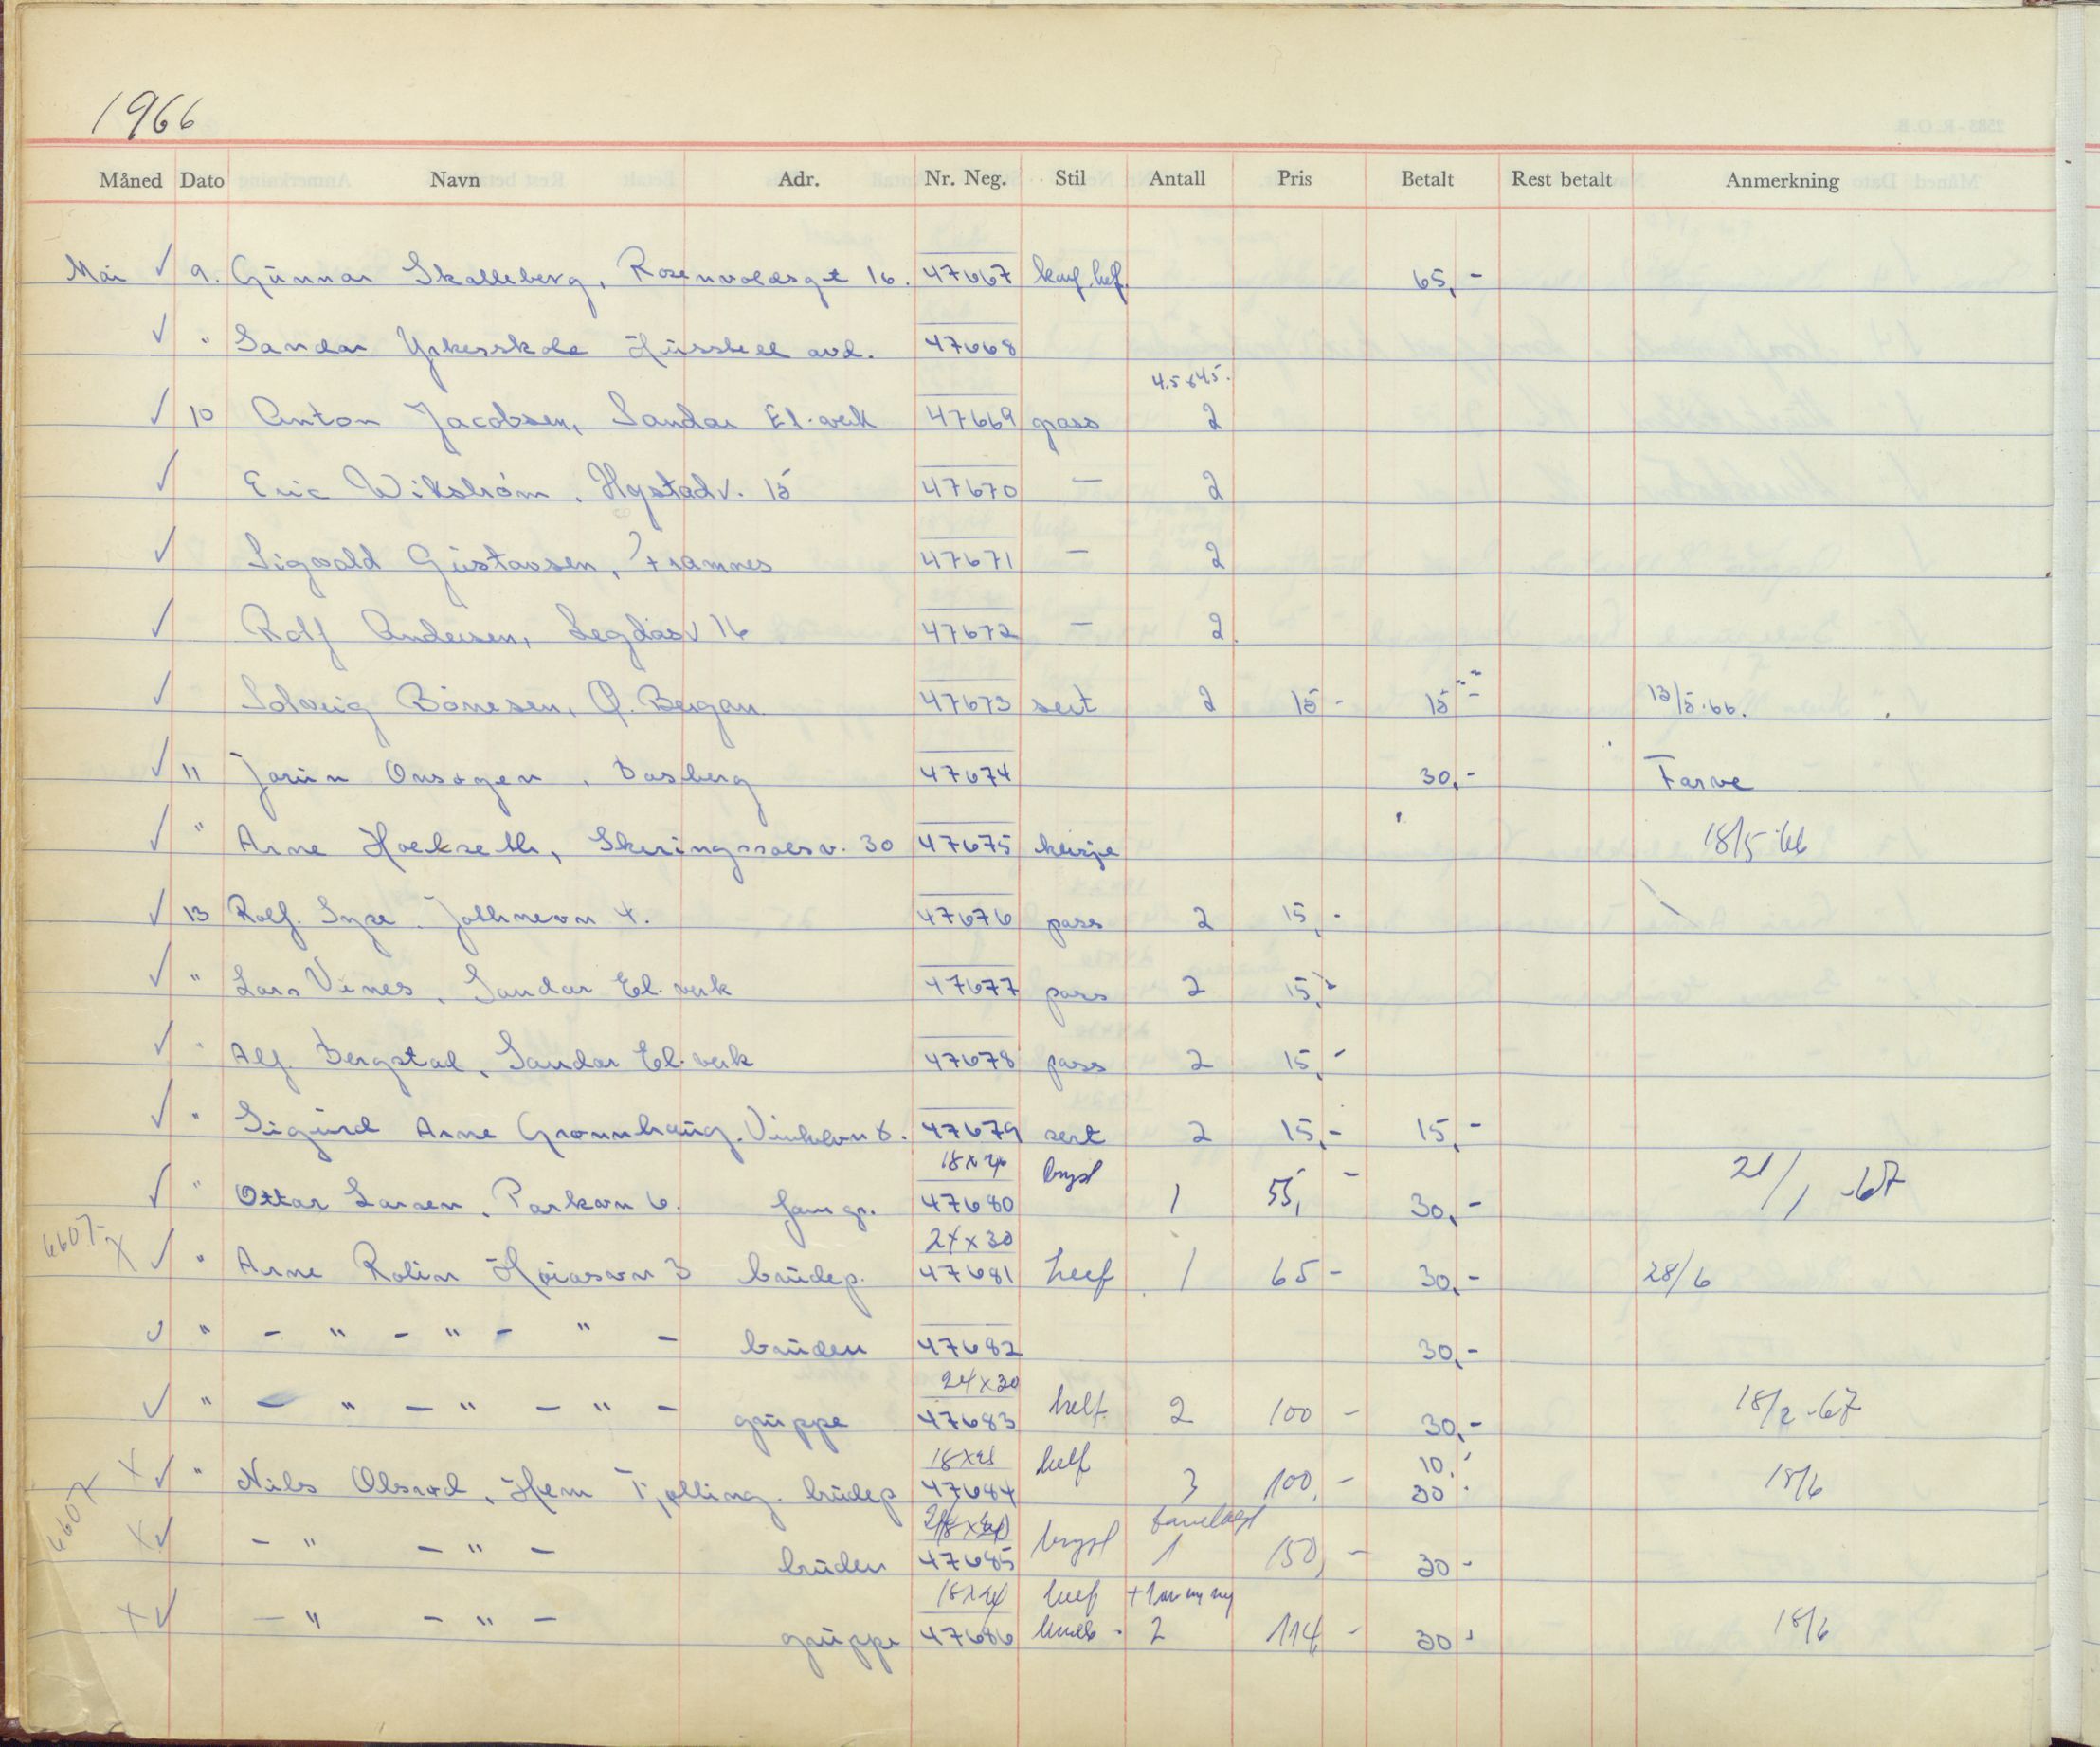 1966
Måned Dato Navn Adr. Nr. Neg. Stil Antall Pris Betalt Rest betalt Anmerkning
Mai ✓ 9. Gunnar Skalleberg, Rosenvoldsgt 16. 47667 65,-
✓ " Sandar Yrkesskole Husstell avd. 47668
4.5x4.5.
✓ 10 Anton Jacobsen, Sandar El.verk 47669 pass 2
✓ Eric Wikström, Hystadv. 15 47670 — 2
✓ Sigvald Gustavsen, Framnes 47671 — 2
✓ Rolf Andersen, 16 47672 — 2.
✓ Solveig Bönesen, Ø. Bergan 47673 sert 2 15 - 15 - 13/5.66.
✓ 11 Jorun Onsøyen, Basberg 47674 30,- Farve
✓ " Arne Hoelseth, 30 47675 18/5-66
✓ 13 Rolf. Syre. 4. 47676 pass 2 15,-
✓ " Lars Vines, Sandar El.verk 47677 pass 2 15,-
✓ " Alf. Bergstad, Sandar El.verk 47678 pass 2 15,-
✓ " Sigurd Arne Grønnhaug. 8. 47679 sert 2 15,- 15,-
18x24 bryst
✓ " Ottar Larsen, Parkvn 6. fam gr. 47680 1 55,- 30,- 21/1 -67
6607 x 24x30
✓ " Arne Rolin 3 brudep. 47681 helf 1 65 - 30,- 28/6
✓ " - " - " - " - bruden 47682 30,-
24x30
✓ " - " - " - " - gruppe 47683 helf. 2 100 - 30,- 18/2 -67
18x24 helf 10,-
x ✓ " Nils Olsrød, Hem Tjølling. brudep 47684 3 100,- 30 - 18/6
6607 bryst
x ✓ - " - " - bruden 47685 1 150,- 30 -
18x24 helf
x ✓ - " - " - gruppe 47686 2 114 - 30 - 18/6